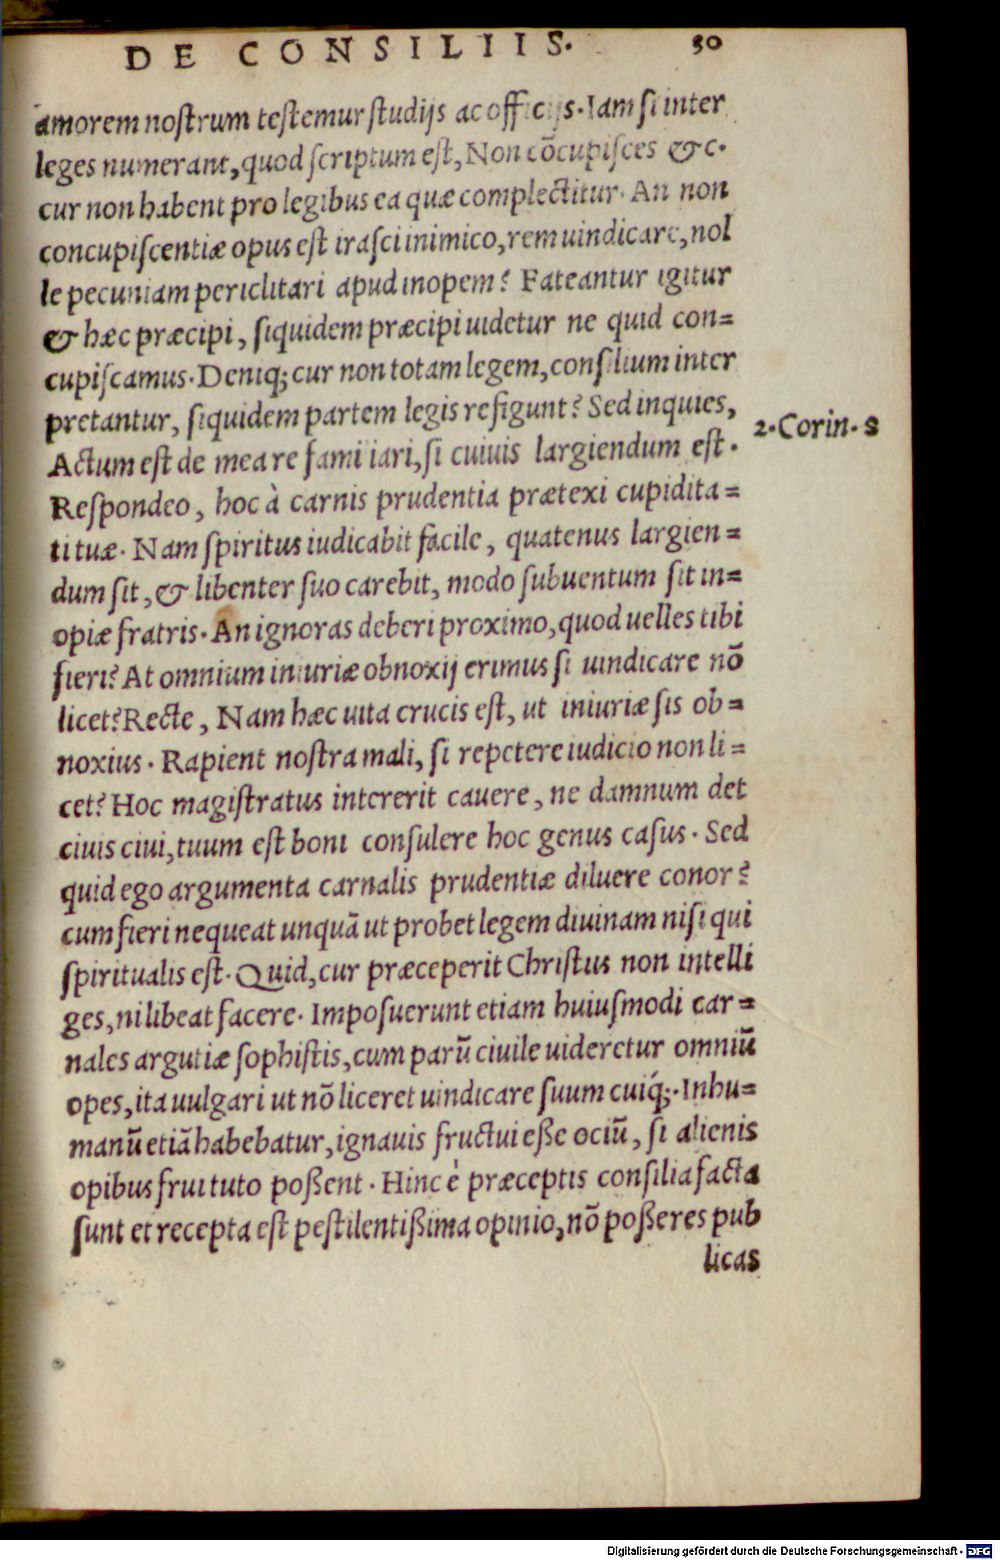 DE CONSILIIS. 50
amorem noſtrum teſtemur ſtudijs ac officijs. Iam ſi inter
leges numerant, quod ſcriptum eſt, Non cōcupiſces &c.
cur non habent pro legibus ea quæ complectitur. An non
concupiſcentiæ opus eſt iraſci inimico, rem uindicare, nol
le pecuniam periclitari apud inopem? Fateantur igitur
& hæc præcipi, ſiquidem præcipi uidetur ne quid con=
cupiſcamus. Deniq; cur non totam legem, conſilium inter
pretantur, ſiquidem partem legis refigunt? Sed inquies,
2. Corin. 8
Actum eſt de mea re familiari, ſi cuiuis largiendum eſt.
Reſpondeo, hoc à carnis prudentia prætexi cupidita=
ti tuæ. Nam ſpiritus iudicabit facile, quatenus largien=
dum ſit, & libenter ſuo carebit, modo ſubuentum ſit in=
opiæ fratris. An ignoras deberi proximo, quod uelles tibi
fieri? At omnium iniuriæ obnoxij erimus ſi uindicare nō
licet? Recte, Nam hæc uita crucis eſt, ut iniuriæ ſis ob=
noxius. Rapient noſtra mali, ſi repetere iudicio non li=
cet? Hoc magiſtratus intererit cauere, ne damnum det
ciuis ciui, tuum eſt boni conſulere hoc genus caſus. Sed
quid ego argumenta carnalis prudentiæ diluere conor?
cum fieri nequeat unquā ut probet legem diuinam niſi qui
ſpiritualis eſt. Quid, cur præceperit Chriſtus non intelli
ges, ni libeat facere. Impoſuerunt etiam huiuſmodi car=
nales argutiæ ſophiſtis, cum parū ciuile uideretur omniū
opes, ita uulgari ut nō liceret uindicare ſuum cuiq́;. Inhu=
manū etiā habebatur, ignauis fructui eße ociū, ſi alienis
opibus frui tuto poßent. Hinc è præceptis conſilia facta
ſunt et recepta eſt peſtilentißima opinio, nō poße res pub
licas
Digitalisierung gefördert durch die Deutsche Forschungsgemeinschaft - DFG